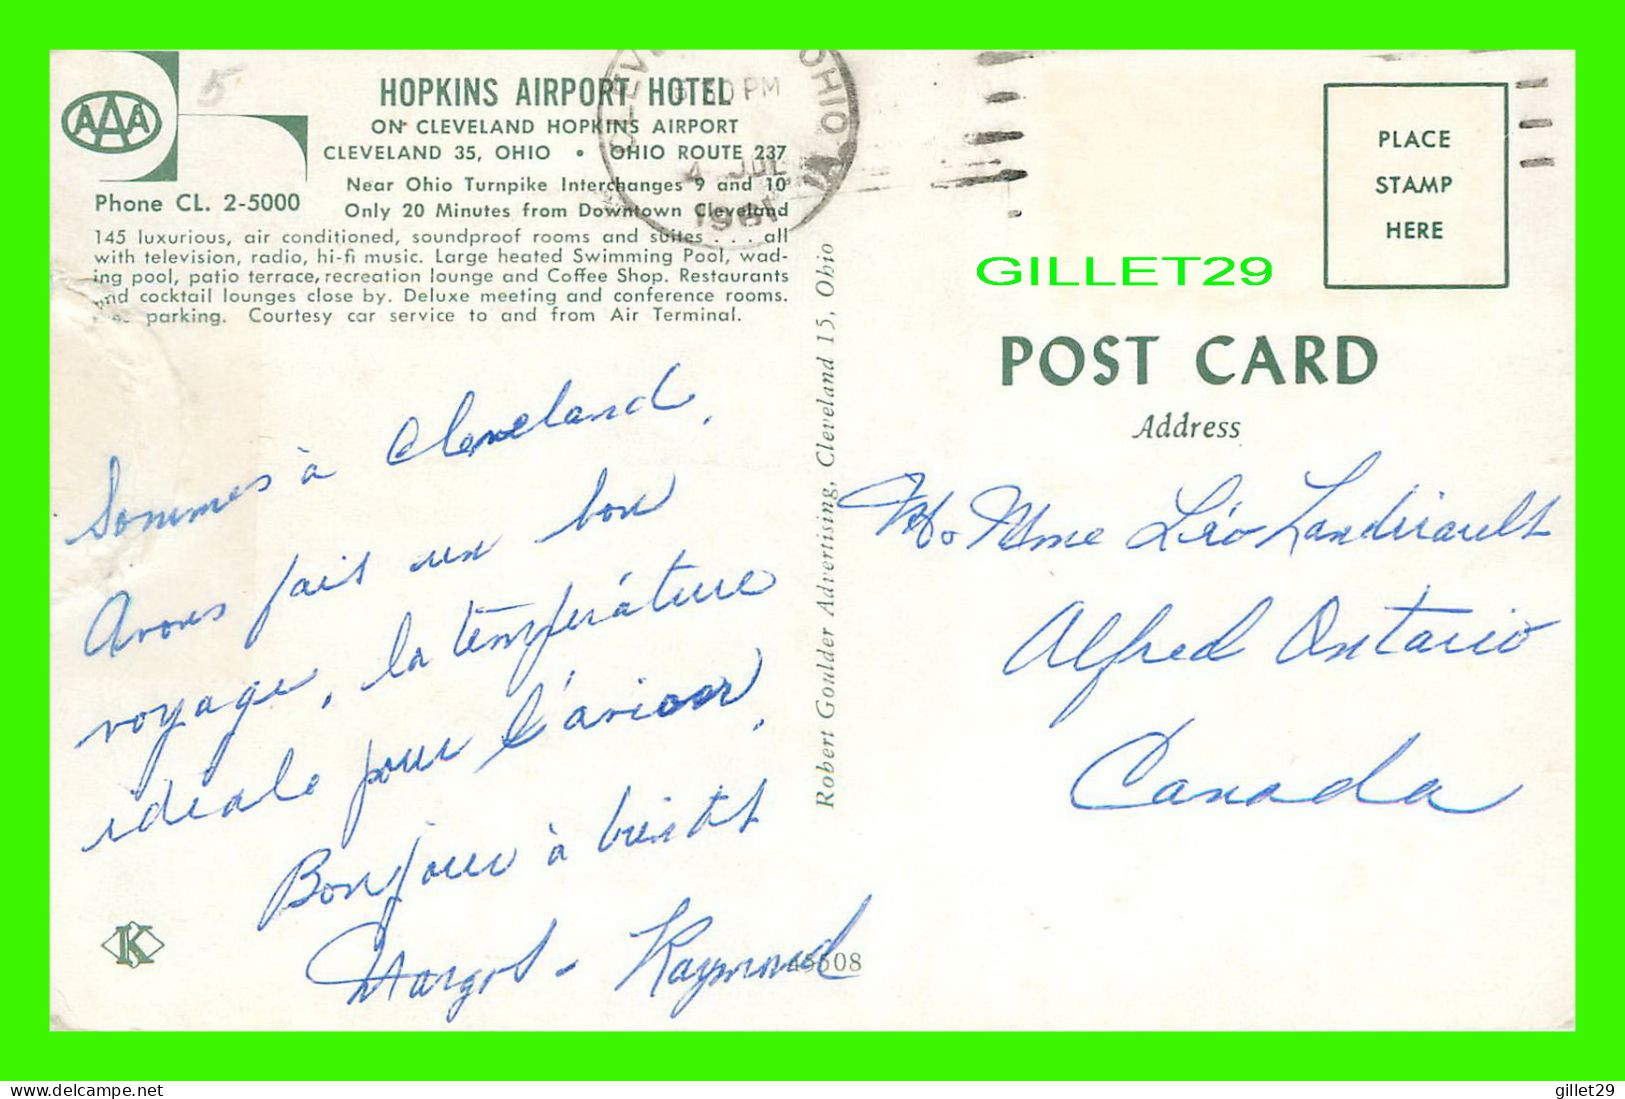 AAA
5
HOPKINS AIRPORT HOTEL
ON CLEVELAND HOPKINS AIRPORT
CLEVELAND 35, OHIO • OHIO ROUTE 237
Near Ohio Turnpike Interchanges 9 and 10
Phone CL. 2-5000
Only 20 Minutes from Downtown Cleveland
145 luxurious, air conditioned, soundproof rooms and suites . . . all
with television, radio, hi-fi music. Large heated Swimming Pool, wad-
ing pool, patio terrace, recreation lounge and Coffee Shop. Restaurants
and cocktail lounges close by. Deluxe meeting and conference rooms.
parking. Courtesy car service to and from Air Terminal.
PM
OHIO
4 JUL
1961
Sommes à Cleveland,
Avons fait un bon
voyage, la température
idéale pour l'avion.
Bonjour à bientôt
Margot - Raymond
K
45608
Robert Goulder Advertising, Cleveland 15, Ohio
PLACE
STAMP
HERE
GILLET29
POST CARD
Address
M. Mme Léo Landriault
Alfred Ontario
Canada
delcampe.net
gillet29